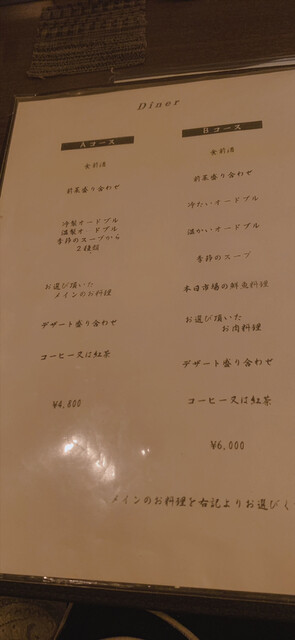 Diner
Aコース
食前酒
前菜盛り合わせ
冷製オードブル
温製オードブル
季節のスープから
2種類
お選び頂いた
メインのお料理
デザート盛り合わせ
コーヒー又は紅茶
¥4,800
Bコース
食前酒
前菜盛り合わせ
冷たいオードブル
温かいオードブル
季節のスープ
本日市場の鮮魚料理
お選び頂いた
お肉料理
デザート盛り合わせ
コーヒー又は紅茶
¥6,000
メインのお料理を右記よりお選びく